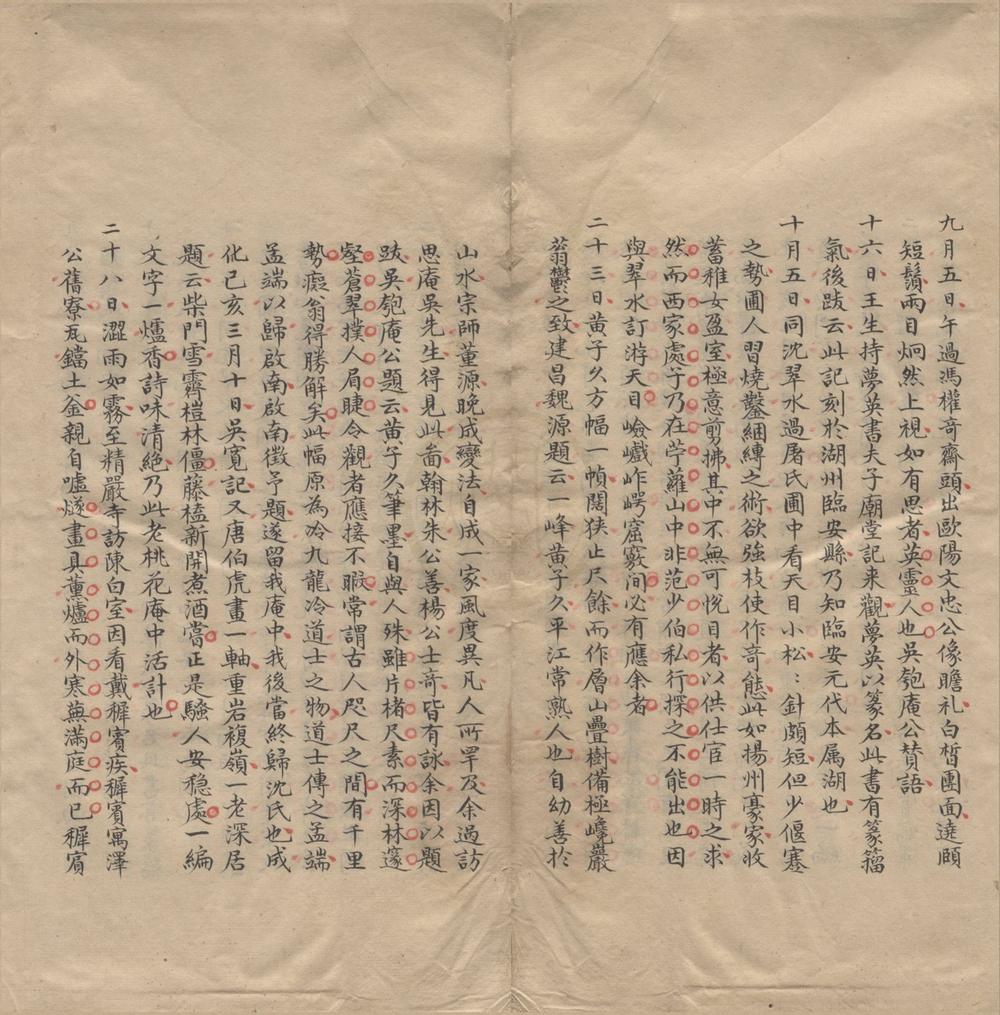 九月五日午過馮權奇齋頭出歐陽文忠公像瞻礼白皙團面遶頤
短鬚兩目炯然上視如有思者英靈人也吳匏庵公賛語
十六日王生持夢英書夫子廟堂記来觀夢英以篆名此書有篆籀
氣後跋云此記刻於湖州臨安縣乃知臨安元代本属湖也
十月五日同沈翠水過屠氏圃中看天目小松:針頗短但少偃蹇
之勢圃人習燒鑿綑縛之術欲強枝使作奇態此如揚州豪家收
蓄稚女盈室極意剪拂其中不無可悅目者以供仕宦一時之求
然而西家處子乃在苧蘿山中非范少伯私行探之不能出也因
與翠水訂游天目嶮巇岞崿窟竅间必有應余者
二十三日黄子久方幅一幀闊狭止尺餘而作層山疊樹備極巉巖
蓊鬱之致建昌魏源題云一峰黄子久平江常熟人也自幼善於
山水宗師董源晚成變法自成一家風度異凡人所罕及余過訪
思庵吳先生得見此啚翰林朱公善楊公士奇皆有詠余因以題
跋吳匏庵公題云黄子久筆墨自與人殊雖片楮尺素而深林邃
壑蒼翠撲人眉睫令觀者應接不暇常謂古人咫尺之間有千里
勢癡翁得勝解矣此幅原為冷九龍冷道士之物道士傳之孟端
孟端以歸啟南啟南徵予題遂留我庵中我後當終歸沈氏也成
化己亥三月十日吳寬記又唐伯虎畫一軸重岩複嶺一老深居
題云柴門雪霽榿林僵藤榼新開煮酒嘗正是騷人安穏處一編
文字一爐香詩味清絶乃此老桃花庵中活計也
二十八日澀雨如霧至精嚴寺訪陳白室因看戴穉賓疾穉賓寓澤
公舊寮瓦鐺土釜親自噓燧畫具薰爐而外寒蕪滿庭而已穉賓